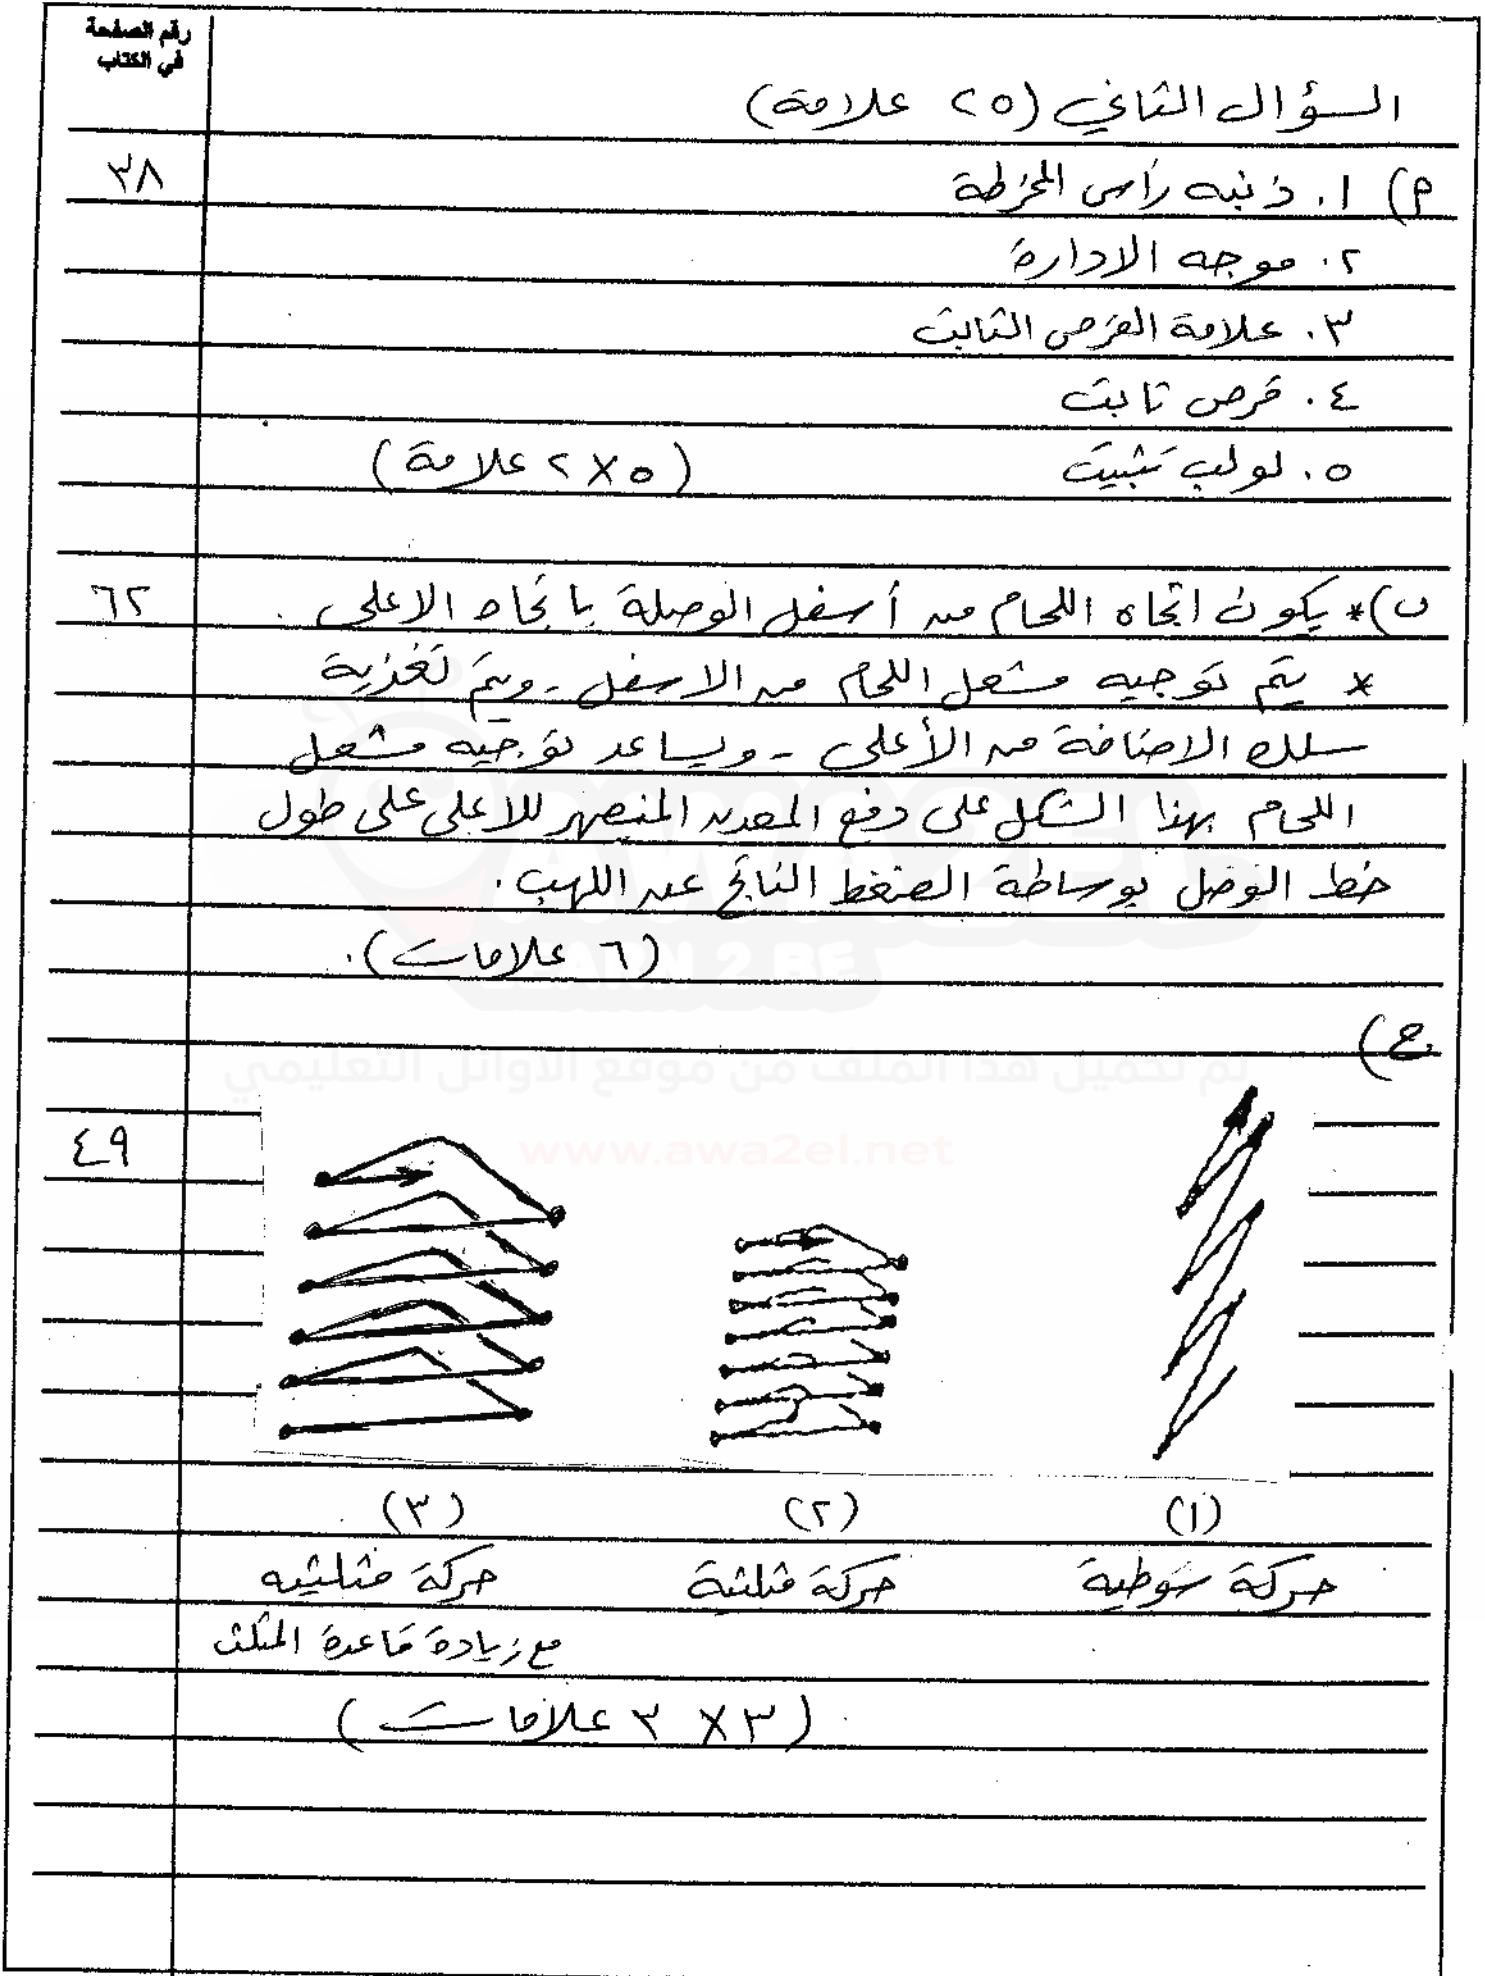 رقم الصفحة
في الكتاب
السؤال الثاني (٢٥ علامة)
٣٨
أ) ١. ذنبه رأس المخرطة
٢. موجه الادارة
٣. علامة القرص الثابت
٤. قرص ثابت
٥. لولب تثبيت (٥ × ٢ علامة)
٦٢
ب) * يكون اتجاه اللحام من أسفل الوصلة باتجاه الاعلى .
* يتم توجيه مشعل اللحام من الاسفل - ويتم تغذية
سلك الاضافة من الأعلى - ويساعد توجيه مشعل
اللحام بهذا الشكل على دفع المعدن المنصهر للاعلى على طول
خط الوصل بوساطة الضغط الناتج عن اللهب .
(٦ علامات) .
ج)
تم تحميل هذا الملف من موقع الأوائل التعليمي
AWA2EL
LEARN 2 BE
www.awa2el.net
٤٩
(١) (٢) (٣)
حركة سوطية حركة مثلثية حركة مثلثيه
مع زيادة قاعدة المثلث
(٣ × ٣ علامات)